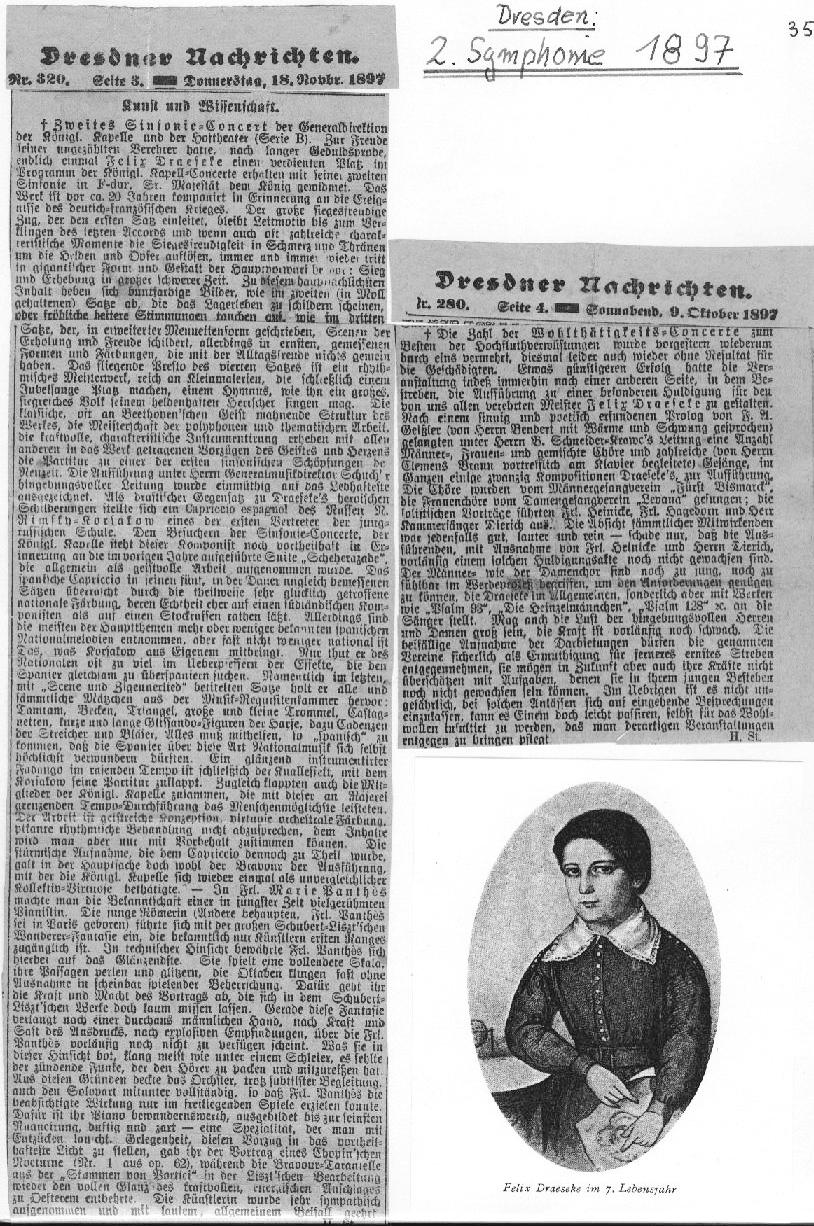 Dresden:
2. Symphonie 1897
35
Dresdner Nachrichten.
Nr. 320. Seite 3. Donnerstag, 18. Novbr. 1897
Kunst und Wissenschaft.
† Zweites Sinfonie-Concert der Generaldirektion
der Königl. Kapelle und der Hoftheater (Serie B). Zur Freude
seiner ungezählten Verehrer hatte, nach langer Geduldsprobe,
endlich einmal Felix Draeseke einen verdienten Platz im
Programm der Königl. Kapell-Concerte erhalten mit seiner zweiten
Sinfonie in F-dur, Sr. Majestät dem König gewidmet. Das
Werk ist vor ca. 20 Jahren komponiert in Erinnerung an die Ereig-
nisse des deutsch-französischen Krieges. Der große siegesfreudige
Zug, der den ersten Satz einleitet, bleibt Leitmotiv bis zum Ver-
klingen des letzten Accords und wenn auch oft zahlreiche charak-
teristische Momente die Siegesfreudigkeit in Schmerz und Thränen
um die Helden und Opfer auflösen, immer und immer wieder tritt
in gigantischer Form und Gestalt der Hauptvorwurf hervor: Sieg
und Erhebung in großer schwerer Zeit. Zu diesem hauptsächlichsten
Inhalt heben sich buntfarbige Bilder, wie im zweiten (in Moll
gehaltenen) Satze ab, die das Lagerleben zu schildern scheinen,
oder fröhliche heitere Stimmungen tauchen auf, wie im dritten
Satze, der, in erweiterter Menuettform geschrieben, Scenen der
Erholung und Freude schildert, allerdings in ernsten, gemessenen
Formen und Färbungen, die mit der Alltagsfreude nichts gemein
haben. Das fliegende Presto des vierten Satzes ist ein rhyth-
misches Meisterwerk, reich an Kleinmalerien, die schließlich einem
Jubelsange Platz machen, einem Hymnus, wie ihn ein großes,
siegreiches Volk seinem heldenhaften Herrscher singen mag. Die
klassische, oft an Beethoven'schen Geist mahnende Struktur des
Werkes, die Meisterschaft der polyphonen und thematischen Arbeit,
die kraftvolle, charakteristische Instrumentirung erheben mit allen
anderen in das Werk getragenen Vorzügen des Geistes und Herzens
die Partitur zu einer der ersten sinfonischen Schöpfungen der
Neuzeit. Die Aufführung unter Herrn Generalmusikdirector Schuch's
hingebungsvoller Leitung wurde einmüthig auf das Lebhafteste
ausgezeichnet. Als drastischer Gegensatz zu Draeseke's heroischen
Schilderungen stellte sich ein Capriccio espagnol des Russen N.
Rimsky-Korsakow eines der ersten Vertreter der jung-
russischen Schule. Den Besuchern der Sinfonie-Concerte, der
Königl. Kapelle steht dieser Komponist noch vortheilhaft in Er-
innerung an die im vorigen Jahre aufgeführte Suite „Scheherazade",
die allgemein als geistvolle Arbeit aufgenommen wurde. Das
spanische Capriccio in seinen fünf, in der Dauer ungleich bemessenen
Sätzen überrascht durch die theilweise sehr glücklich getroffene
nationale Färbung, deren Echtheit eher auf einen südländischen Kom-
ponisten als auf einen Stockrussen rathen läßt. Allerdings sind
die meisten der Hauptthemen mehr oder weniger bekannten spanischen
Nationalmelodien entnommen, aber fast nicht weniger national ist
Das, was Korsakow aus Eigenem mitbringt. Nur thut er des
Nationalen oft zu viel im Ueberpfeffern der Effekte, die den
Spanier gleichsam zu überspaniern suchen. Namentlich im letzten,
mit „Scene und Zigeunerlied" betitelten Satze holt er alle und
sämmtliche Mätzchen aus der Musik-Requisitenkammer hervor:
Tamtam, Becken, Triangel, große und kleine Trommel, Castag-
netten, kurze und lange Glissando-Figuren der Harfe, dazu Cadenzen
der Streicher und Bläser, Alles muß mithelfen, so „spanisch" zu
kommen, daß die Spanier über diese Art Nationalmusik sich selbst
höchlichst verwundern dürften. Ein glänzend instrumentirter
Fadango im rasenden Tempo ist schließlich der Knalleffekt, mit dem
Korsakow seine Partitur zuklappt. Zugleich klappten auch die Mit-
glieder der Königl. Kapelle zusammen, die mit dieser an Raserei
grenzenden Tempo-Durchführung das Menschenmöglichste leisteten.
Der Arbeit ist geistreiche Konzeption, virtuose orchestrale Färbung,
pikante rhythmische Behandlung nicht abzusprechen, dem Inhalte
wird man aber nur mit Vorbehalt zustimmen können. Die
stürmische Aufnahme, die dem Capriccio dennoch zu Theil wurde,
galt in der Hauptsache doch wohl der Bravour der Ausführung,
mit der die Königl. Kapelle sich wieder einmal als unvergleichlicher
Kollektiv-Virtuose bethätigte. — In Frl. Marie Panthès
machte man die Bekanntschaft einer in jüngster Zeit vielgerühmten
Pianistin. Die junge Römerin (Andere behaupten, Frl. Panthès
sei in Paris geboren) führte sich mit der großen Schubert-Liszt'schen
Wanderer-Fantasie ein, die bekanntlich nur Künstlern ersten Ranges
zugänglich ist. In technischer Hinsicht bewährte Frl. Panthès sich
hierbei auf das Glänzendste. Sie spielt eine vollendete Skala,
ihre Passagen perlen und glitzern, die Oktaven klingen fast ohne
Ausnahme in scheinbar spielender Beherrschung. Dafür geht ihr
die Kraft und Macht des Vortrags ab, die sich in dem Schubert-
Liszt'schen Werke doch kaum missen lassen. Gerade diese Fantasie
verlangt nach einer durchaus männlichen Hand, nach Kraft und
Saft des Ausdrucks, nach explosiven Empfindungen, über die Frl.
Panthès vorläufig noch nicht zu verfügen scheint. Was sie in
dieser Hinsicht bot, klang meist wie unter einem Schleier, es fehlte
der zündende Funke, der den Hörer zu packen und mitzureißen hat.
Aus diesen Gründen deckte das Orchester, trotz subtilster Begleitung,
auch den Solopart mitunter vollständig, so daß Frl. Panthès die
beabsichtigte Wirkung nur im freiliegenden Spiele erzielen konnte.
Dafür ist ihr Piano bewundernswerth, ausgebildet bis zur feinsten
Nuancirung, duftig und zart — eine Spezialität, der man mit
Entzücken lauscht. Gelegenheit, diesen Vorzug in das vortheil-
hafteste Licht zu stellen, gab ihr der Vortrag eines Chopin'schen
Nocturne (Nr. 1 aus op. 62), während die Bravour-Tarantelle
aus der „Stummen von Portici" in der Liszt'schen Bearbeitung
wieder den vollen Glanz des kraftvollen, energischen Anschlages
zu Oesterem entbehrte. Die Künstlerin wurde sehr sympathisch
aufgenommen und mit lautem, allgemeinem Beifall geehrt
H. St.
Dresdner Nachrichten.
Nr. 280. Seite 4. Sonnabend, 9. Oktober 1897
† Die Zahl der Wohlthätigkeits-Concerte zum
Besten der Hochfluthverwüstungen wurde vorgestern wiederum
durch eins vermehrt, diesmal leider auch wieder ohne Resultat für
die Geschädigten. Etwas günstigeren Erfolg hatte die Ver-
anstaltung indeß immerhin nach einer anderen Seite, in dem Be-
streben, die Aufführung zu einer besonderen Huldigung für den
von uns allen verehrten Meister Felix Draeseke zu gestalten.
Nach einem sinnig und poetisch erfundenen Prolog von F. A.
Geißler (von Herrn Bendert mit Wärme und Schwung gesprochen)
gelangten unter Herrn B. Schneider-Krawc's Leitung eine Anzahl
Männer-, Frauen- und gemischte Chöre und zahlreiche (von Herrn
Clemens Braun vortrefflich am Klavier begleitete) Gesänge, im
Ganzen einige zwanzig Kompositionen Draeseke's, zur Aufführung.
Die Chöre wurden vom Männergesangverein „Fürst Bismarck",
die Frauenchöre vom Damengesangverein „Levana" gesungen; die
solistischen Vorträge führten Frl. Heinicke, Frl. Hagedorn und Herr
Kammersänger Dierich aus. Die Absicht sämmtlicher Mitwirkenden
war jedenfalls gut, lauter und rein — schade nur, daß die Aus-
führenden, mit Ausnahme von Frl. Heinicke und Herrn Dierich,
vorläufig einem solchen Huldigungsakte noch nicht gewachsen sind.
Der Männer- wie der Damenchor sind noch zu jung, noch zu
fühlbar im Werden begriffen, um den Anforderungen genügen
zu können, die Draeseke im Allgemeinen, sonderlich aber mit Werken
wie „Psalm 93", „Die Heinzelmännchen", „Psalm 128" ꝛc. an die
Sänger stellt. Mag auch die Lust der hingebungsvollen Herren
und Damen groß sein, die Kraft ist vorläufig noch schwach. Die
beifällige Aufnahme der Darbietungen dürfen die genannten
Vereine sicherlich als Ermuthigung für ferneres ernstes Streben
entgegennehmen, sie mögen in Zukunft aber auch ihre Kräfte nicht
überschätzen mit Aufgaben, denen sie in ihrem jungen Bestehen
noch nicht gewachsen sein können. Im Uebrigen ist es nicht un-
gefährlich, bei solchen Anlässen sich auf eingehende Besprechungen
einzulassen, kann es Einem doch leicht passiren, selbst für das Wohl-
wollen titulirt zu werden, das man derartigen Veranstaltungen
entgegen zu bringen pflegt
H. St.
Felix Draeseke im 7. Lebensjahr